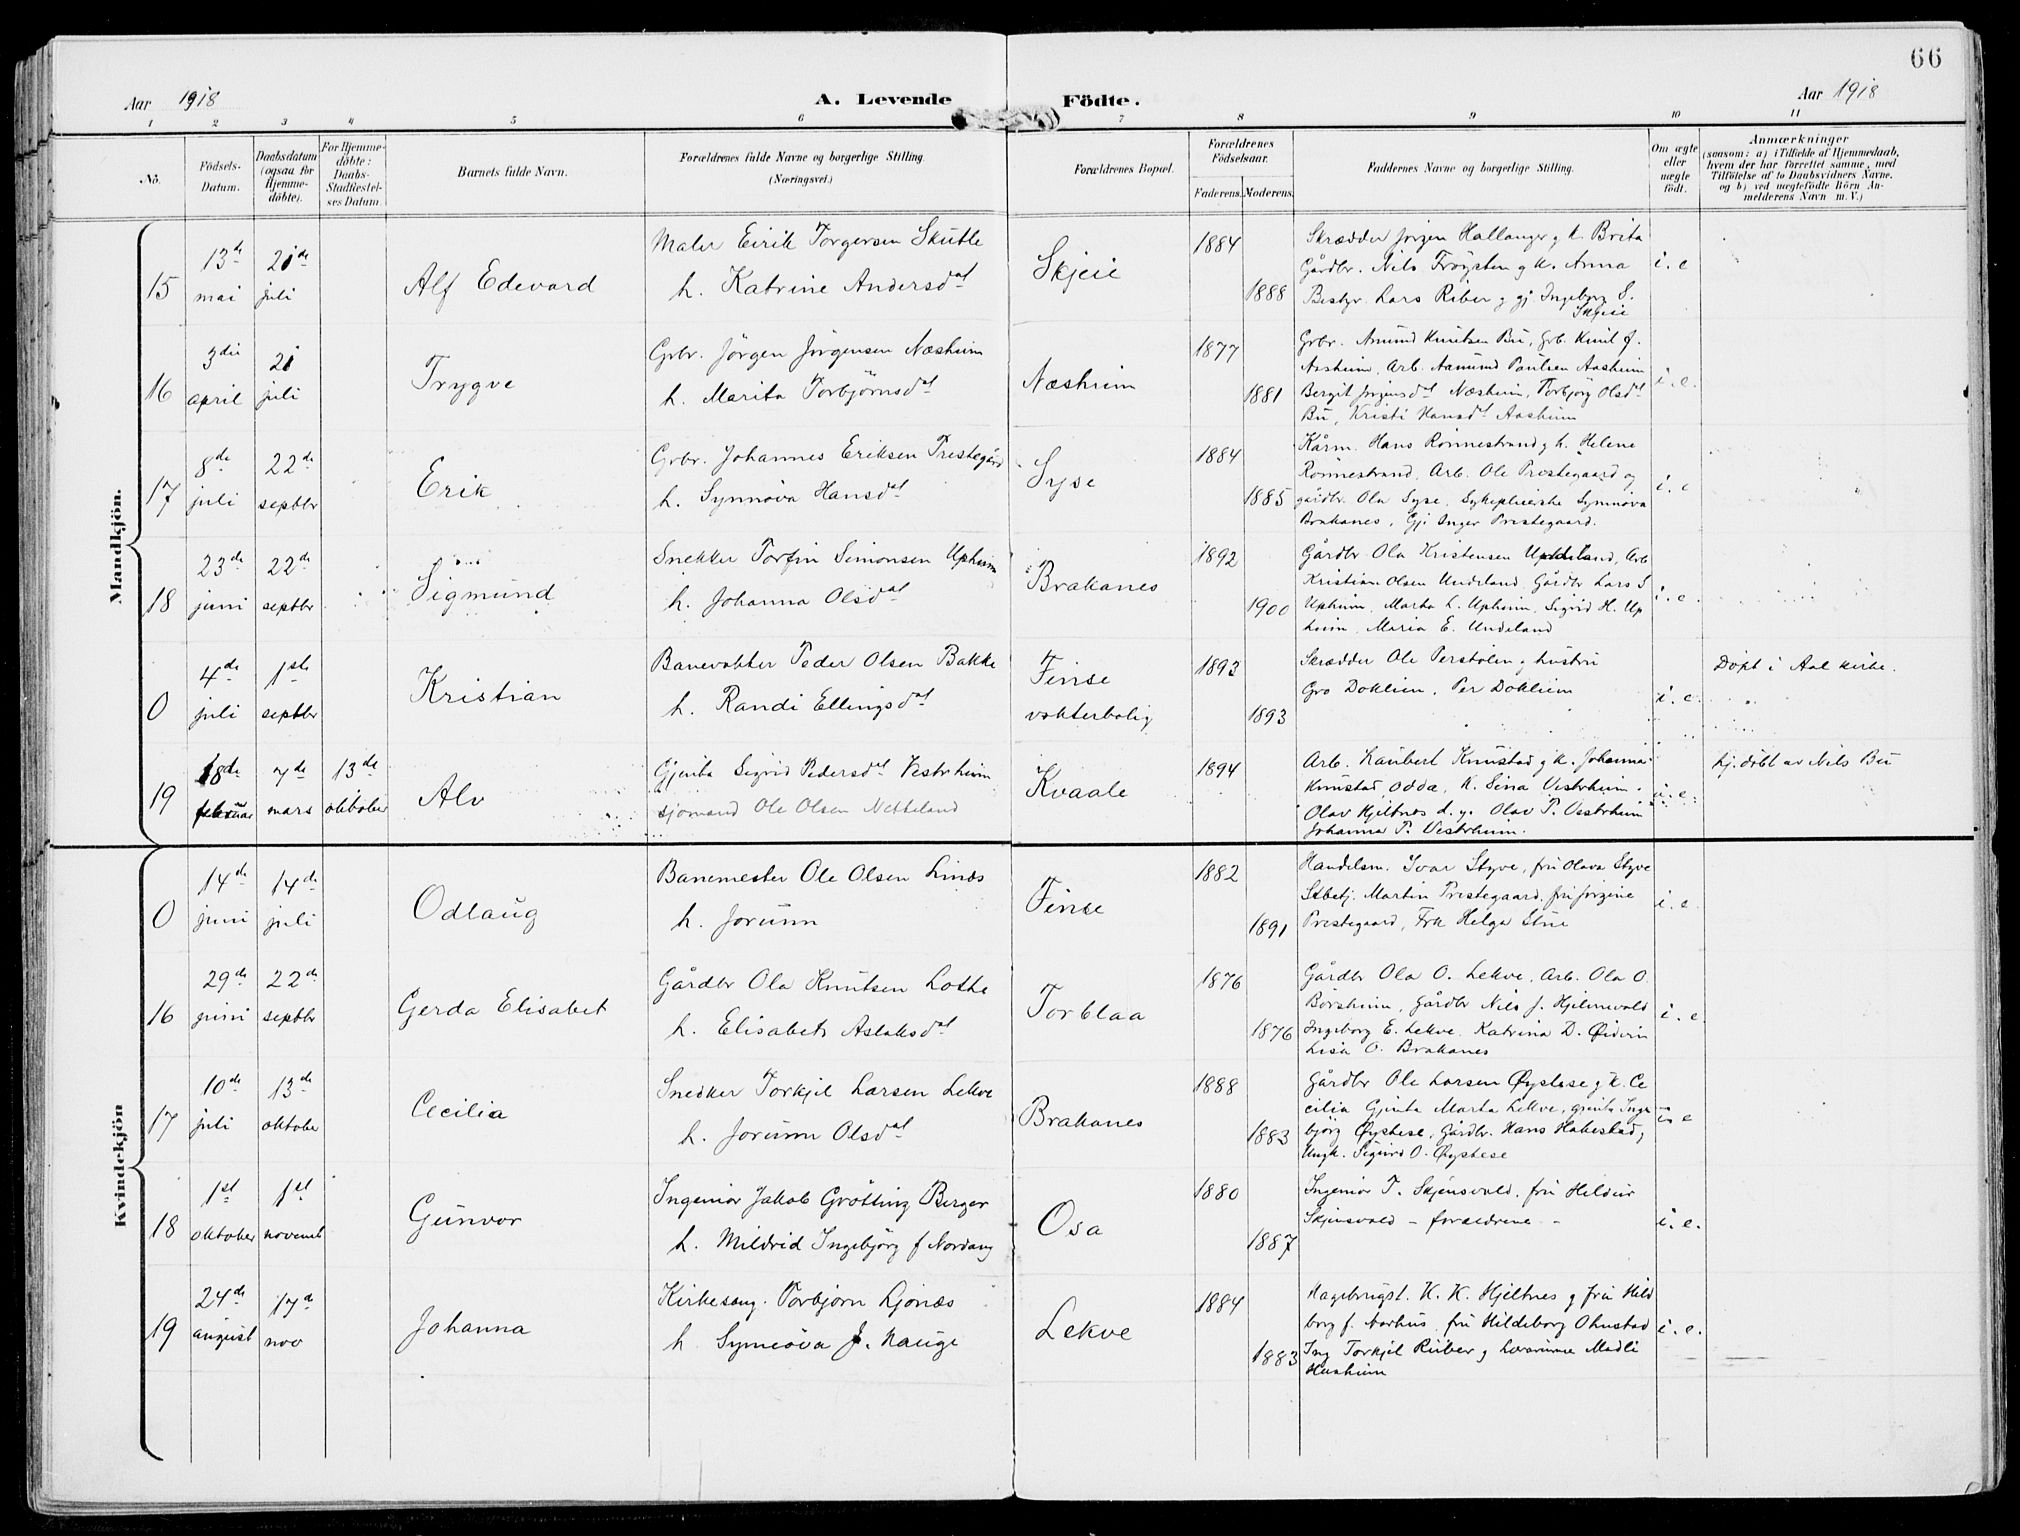 66
Aar 1918
A. Levende Födte.
Aar 1918
1 2 3 4 5 6 7 8 9 10 11
No.
Födsels-Datum.
Daabsdatum (ogsaa for Hjemme-döbte).
For Hjemme-döbte: Daabs-Stadfæstel-ses Datum.
Barnets fulde Navn.
Forældrenes fulde Navne og borgerlige Stilling.
(Næringsvei.)
Forældrenes Bopæl.
Forældrenes Födselsaar.
Faderens. Moderens.
Faddernes Navne og borgerlige Stilling.
Om ægte eller uægte födt.
Anmærkninger
(saasom: a) i Tilfælde af Hjemmedaab, hvem der har forrettet samme, med Tilföielse af to Daabsvidners Navne, og b) ved uægtefödte Börn An-melderens Navn m. V.)
Mandkjön.
15
13de mai
21de juli
Alf Edevard
Maler Eirik Torgersen Skutle
h. Katrine Andersdat
Skjeie
1884
1888
Skrædder Jørgen Hallanger g k. Brita
Gårdbr. Nils Trøysten g k. Anna
Bestyr. Lars Riber g gj Ingeborg S.
Skjeie
i. e
16
3die april
21 juli
Trygve
Grbr. Jörgen Jörgensen Næsheim
h. Marita Torbjörnsdat
Næsheim
1877
1881
Grbr. Amund Knutsen Bu, Grb. Knut J.
Aasheim, Arb. Aamund Paulsen Aasheim
Bergit Jörgensdat Næsheim, Torbjörg Olsdat
Bu, Kristi Hansdat Aasheim
i. e.
17
8de juli
22de septbr
Erik
Grbr. Johannes Eriksen Prestegård
h. Synnöva Hansdat
Syse
1884
1885
Kårm. Hans Rönnestrand g h. Helene
Rönnestrand, Arb. Ole Prestegaard og
gårdbr. Ola Syse, Sykepleierske Synnöva
Brakanes, Gj. Inger Prestegaard.
i. e
18
23de juni
22de septbr
Sigmund
Snekker Torfin Simonsen Upheim
h. Johanna Olsdat
Brakanes
1892
1900
Gårdbr Ola Kristensen Undeland, Arb
Kristian Olsen Undeland, Gårdbr Lars S
Upheim, Marta L. Upheim, Sigrid H. Up
heim, Maria E. Undeland
i. e.
0
4de juli
1ste septbr
Kristian
Banevokter Peder Olsen Bakke
h. Randi Ellingsdat
Finse
vokterbolig
1893
1893
Skrædder Ole Perstölen g hustru
Gro Doklien, Per Doklien
i. e.
Döpt i Aal kirke.
19
18de februar
7de mars
13de oktober
Alv
Gjenta Sigrid Pedersdat Vestrheim
sjömand Ole Olsen Netteland
Kvaale
1894
Arb. Laubert Knustad g k. Johanna
Knustad, Odda, K. Sina Vestrheim.
Olav Hjeltnes d. y. Olav P. Vestrheim
Johanna P. Vestrheim.
u. e.
hj. döbt av Nils Bu
Kvindekjön
0
14de juni
14de juli
Odlaug
Banemester Ole Olsen Linås
h. Jorunn
Finse
1882
1891
Handelsm. Ivar Styve, fru Olava Styve
Stbetj. Martin Prestegaard, fru Jorgine
Prestegaard, Frk Helga Stue
i. e.
16
29de juni
22de septbr
Gerda Elisabet
Gårdbr Ola Knutsen Lothe
h. Elisabet Aslaksdat
Torblaa
1876
1876
Gårdbr Ola O. Lekve, Arb. Ola O
Börsheim, Gårdbr Nils J. Hjelmevold
Ingeborg E. Lekve. Katrina D. Øidvin
Lisa O. Brakanes
i. e.
17
10de juli
13de oktober
Cecilia
Snedker Torkjel Larsen Lekve
h. Jorunn Olsdat
Brakanes
1888
1883
Gårdbr Ole Larsen Øystese g k. Ce
cilia Gjenta Marta Lekve, gjenta Inge
björg Øystese, Gårdbr. Hans Hakestad,
Ungk. Sigurd O. Øystese
i. e
18
1st oktober
1st novemb
Gunvor
Ingeniör Jakob Grötting Berger
h. Mildrid Ingebjörg f Nordang
Osa
1880
1887
Ingeniör T. Skjensvold. fru Hildur
Skjensvold – forældrene –
i. e.
19
24de august
17d nov
Johanna
Kirkesang. Torbjörn Ljonæs
h Synnöva J. Hauge
Lekve
1884
1883
Hagebrugst. K. K. Hjeltnes g fru Hild
borg f. Aarhus, fru Hildeborg Ohnstad
Ing Torkjel Riiber g Lærerinne Madli
Husheim
i. e.